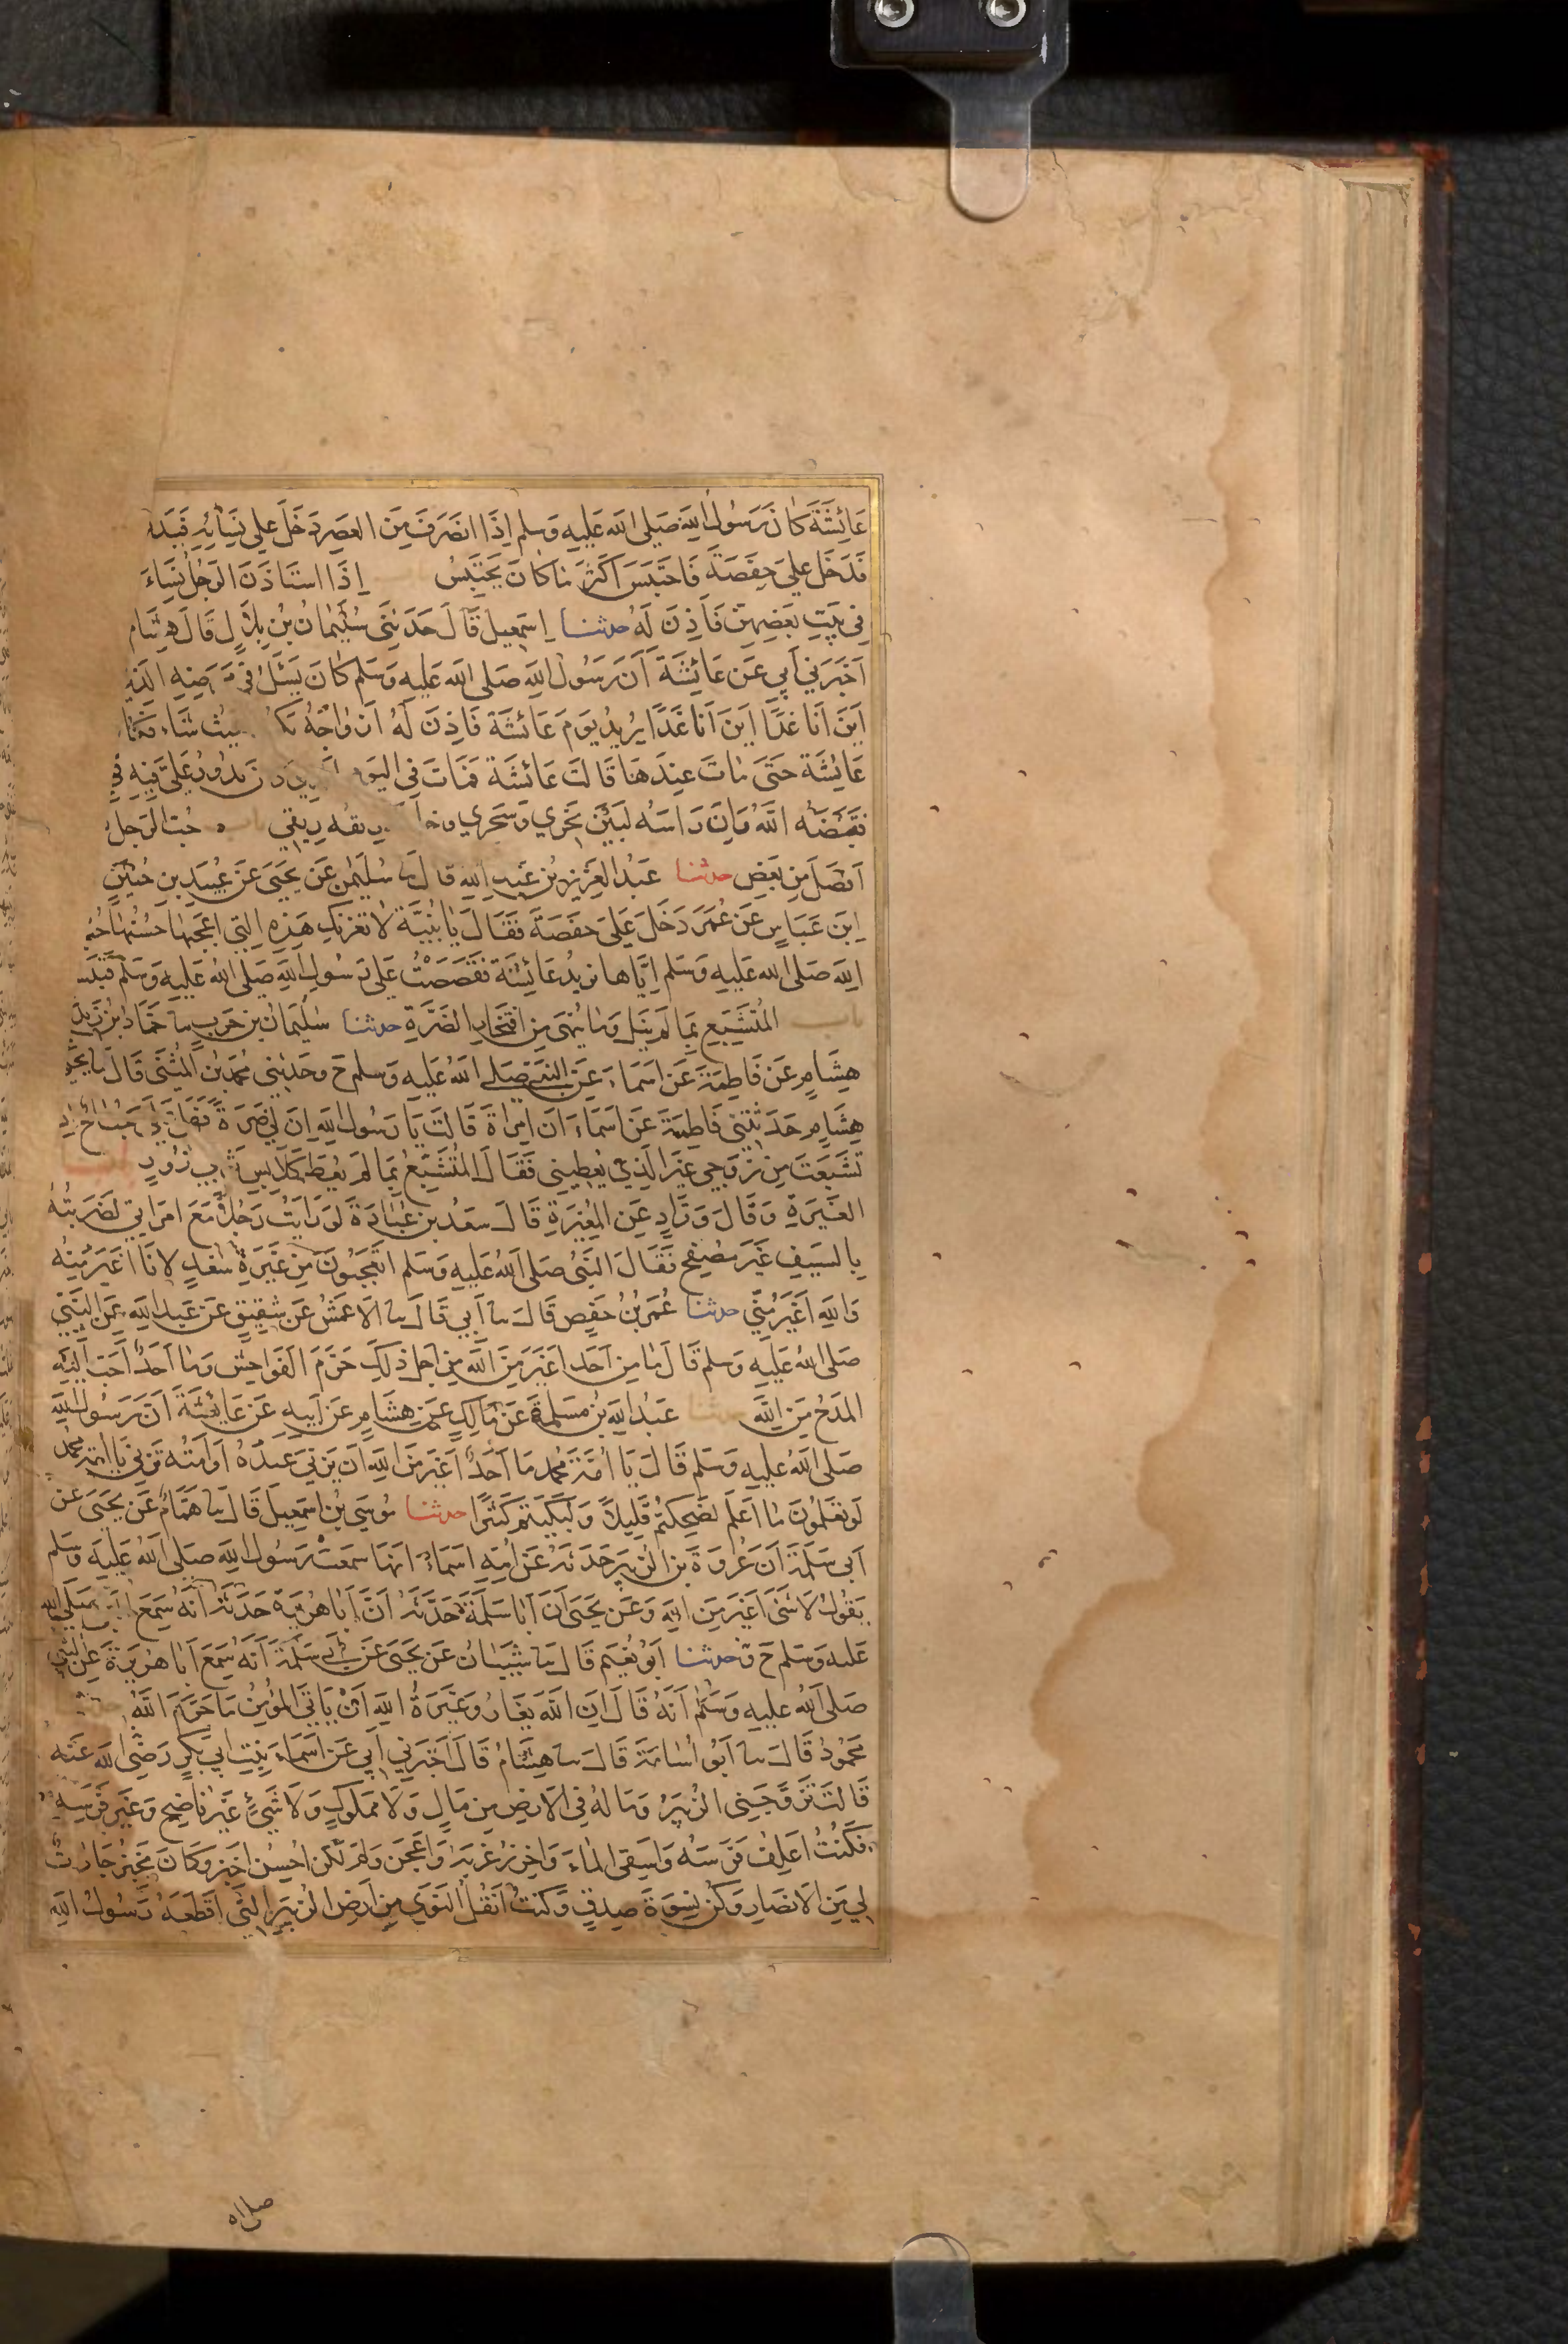 عَائِشَةَ كَانَ رَسُولُ اللهِ صَلَى الله عَلَيهِ وَسَلم اِذَا انصَرَفَ مِنَ العَصرِ دَخَلَ عَلى نِسَائِهِ فَيَد
فَدَخَلَ عَلىَ حَفصَةَ فَاحتَبَسَ اكثَرَ مَا كَانَ يَحتَبِسُ اِذَا استَاذَنَ الرَجُلُ نِسَاءَ
فِى بَيتِ بَعضِهِنَ فَاَذِنَ لَهُ حدثنا اِسمَعِيلُ قَالَ حَدَثَنِى سُلَيمَانُ بنُ بِلاَلٍ قَالَ هِشَام
اَخبَرَنِي اَبِي عَن عَائِشَةَ اَنَ رَسُولَ اللهِ صَلى الله عَلَيهِ وَسَلم كَانَ يَسئَلُ فى مَرَضِهِ الَذِ
اَينَ اَنَا غَدًا اَينَ اَنَا غَدًا يُرِيدُ يَومَ عَائشَةَ فَاَذِنَ لَهُ اَزوَاجُهُ يَكُ حيث شَاءَ فَكَا
عَائِشَةَ حَتَى مَاتَ عِندَهَا قَالَت عَائشَة فَمَاتَ فِى اليَوم كَانَ يَدُورُ عَلَىَّ فِيهِ فِي
فَقَبَضَهُ اللهُ وَاِنَ رَاسَهُ لَبَينَ نَحرِي وَسَحرِي وخا رِيقُهُ رِيقِي باب حُبّ الرَجل
اَفضَلَ مِن بَعضٍ حدثنا عَبدُ العَزِيزِ بنُ عَبدِ اللهِ قال نا سُلَيمن عَن يَحيَى عَن عُبَيدِ بنِ حُنَينٍ
ابنَ عَبَاسٍ عَن عُمَرَ دَخَلَ عَلىَ حَفصَةَ فَقَالَ يَا بُنَيَّة لاَ تَغُرَنكِ هَذِهِ الَتِي اَعجَبَهَا حُسنُهَا حُبُ
اللهِ صَلى الله عَلَيهِ وَسَلم اِيَّاها يُرِيدُ عَائِشَةَ فَقَصَصتُ عَلى رَسُولِ اللهِ صَلى اللهُ عَلَيهِ وَسَلم فَتَبَس
باب المُتَشَبِعِ بِمَا لَم يَنَل وَمَا يُنهَى مِن افتِخَارِ الضَرَّةِ حدثنا سُلَيمَانُ بنُ حَربٍ نا حَمَّادُ بنُ زَيدٍ
هِشَامٍ عَن فَاطِمَةَ عَن اَسمَاءَ عَنِ النَبىِّ صَلى اللهُ عَلَيهِ وَسلم ح وحَدثَنِي مُحَمدُ بنُ المُثَنَّى قَالَ نا يَحيَ
هِشَامٍ حَدَثَتنِى فَاطِمَةَ عَن اَسمَاءَ اَنَ امرَاَةً قَالَت يَا رَسُولَ اللهِ اِنَ لِى ضَرَةً فَهَل عَلَىَّ جُنَاحٌ اِن
تَشَبَعَت مِن زَوجِى غَيرَ الَذِي يُعطِينِى فَقَالَ المُتَشَبِّعُ بِمَا لَم يُعطَ كَلاَبِسِ ثَوبَي زُورٍ باب
الغَيرَةِ وَقَالَ وَرَادٌ عَنِ المُغِيرَةِ قَالَ سَعدُ بنُ عُبَادَةَ لَو رَاَيتُ رَجُلاً مَعَ امرَاَتِي لَضَرَبتُهُ
بِالسَيفِ غَيرَ مُصفِحٍ فَقَالَ النَبىُ صَلى اللهُ عَلَيهِ وَسَلم اَتَعجَبُونَ مِن غَيرَةِ سَعدٍ لاَنَا اَغيَرُ مِنهُ
وَاللهِ اَغيَرُ مِنِّي حدثنا عُمَرُ بنُ حَفصٍ قَالَ نا اَبِي قَالَ نا الاَعمَشُ عَن شَقِيقٍ عَن عَبدِ اللهِ عَنِ النَبِىِّ
صَلى اللهُ عَلَيهِ وَسلم قَالَ مَا مِن اَحَدٍ اَغيَرُ مِنَ اللهِ مِن اَجلِ ذَلِكَ حَرَمَ الفَوَاحِشَ وَمَا اَحَدٌ اَحَبَ اِلَيهِ
المَدحُ مِنَ اللهِ حدثنا عَبدُ اللهِ بنُ مَسلَمَةَ عَن مَالِكٍ عَن هِشَامٍ عَن اَبِيهِ عَن عَائِشَةَ اَنَ رَسُولَ اللهِ
صَلى اللهُ عَلَيهِ وَسَلم قَالَ يَا اُمَّةَ مُحَمدٍ مَا اَحَدٌ اَغيَرَ مِنَ اللهِ اَن يَزنِيَ عَبدُهُ اَو اَمَتُهُ تَزنِي يَا اُمَةَ مُحَمَّدٍ
لَو تَعلَمُونَ مَا اَعلَم لَضَحِكتُم قَلِيلاً وَلَبَكَيتُم كَثِيرًا حدثنا مُوسَى بنُ اسمَعِيلَ قَالَ نا هَمَّامٌ عَن يَحيَى عَن
اَبى سَلَمَةَ اَنَ عُروَةَ بنَ الزُبَيرِ حَدَثَهُ عَن اُمِّهِ اَسمَاءَ اَنَهَا سَمِعَت رَسُولَ اللهِ صَلى اللهُ عَلَيهِ وَسَلم
يَقُولُ لاَ شَىءَ اَغيَرُ مِنَ اللهِ وَعَن يَحيَى اَنَ اَبَا سَلَمَةَ حَدَّثَهُ اَنَّ اَبَا هُرَيرَةَ حَدَّثَهُ اَنَهُ سَمِعَ النبى صَلى الله
عَلَيه وَسَلم ح وحدثنا اَبُو نُعَيم قَالَ نا شَيبَانُ عَن يَحيَى عَن اَبى سَلَمَةَ اَنَهُ سَمِعَ اَبَا هُرَيرَةَ عَنِ النَبى
صَلى اللهُ عَلَيهِ وَسَلم اَنَهُ قَالَ اِنَ اللهَ يَغَارُ وَغَيرَةُ اللهِ اَن يَاتِىَ المُؤمِنُ مَا حَرَّمَ اللهُ
مَحمُودٌ قَالَ نا اَبُو اُسَامَةَ قَالَ نا هِشَامٌ قَالَ اَخبَرَنِي اَبِي عَن اَسمَاءَ بِنتِ اَبِي بَكرٍ رَضِىَ الله عَنه
قَالَت تَزَوَّجَنِى الزُبَيرُ وَمَا لَهُ فِى الاَرضِ مِن مَالٍ وَلاَ مَملُوكٍ وَلاَ شَىءٍ غَيرَ نَاضِحٍ وَغَيرَ فَرَسِهِ
فَكُنتُ اَعلِفُ فَرَسَهُ وَاَستَقِى المَاءَ وَاَخرِزُ غَربَهُ وَاَعجِنُ وَلَم اَكُن اُحسِنُ اَخبِزُ وَكَانَ يَخبِزُ جَارَاتٌ
لِي مِنَ الاَنصَارِ وَكُنَّ نِسوَةَ صِدقٍ وَكُنتُ اَنقُلُ النَوَى مِن اَرضِ الزُبَيرِ الَّتِى اَقطَعَهُ رَسُولُ اللهِ
صلى الله